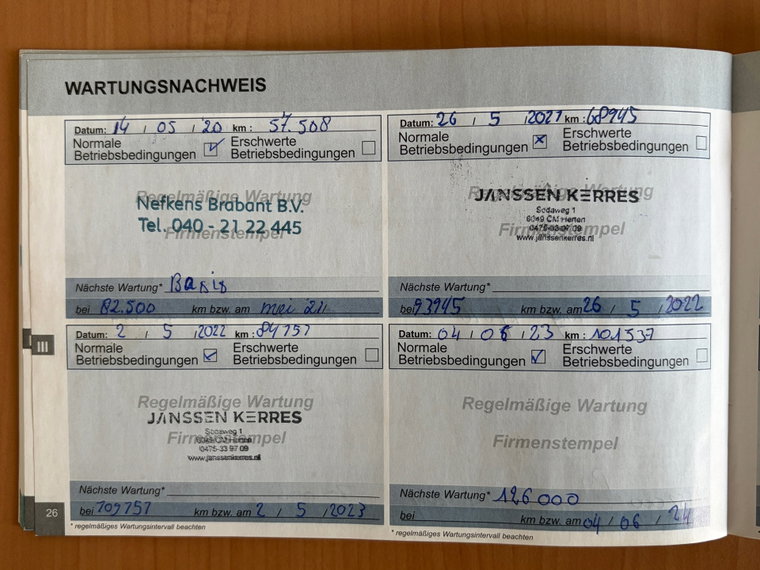 WARTUNGSNACHWEIS
Datum: 14 / 05 / 20 km : 57.508
Normale Betriebsbedingungen ☑ Erschwerte Betriebsbedingungen ☐
Regelmäßige Wartung
Nefkens Brabant B.V.
Tel. 040 - 21 22 445
Firmenstempel
Nächste Wartung* Basis
bei 82.500 km bzw. am mei 21
Datum: 26 / 5 / 2021 km : 68945
Normale Betriebsbedingungen ☒ Erschwerte Betriebsbedingungen ☐
Regelmäßige Wartung
JANSSEN KERRES
Sodaweg 1
6049 CM Herten
0475-33 97 09
www.janssenkerres.nl
Firmenstempel
Nächste Wartung*
bei 93945 km bzw. am 26 / 5 / 2022
Datum: 2 / 5 / 2022 km : 84757
Normale Betriebsbedingungen ☑ Erschwerte Betriebsbedingungen ☐
Regelmäßige Wartung
JANSSEN KERRES
Sodaweg 1
6049 CM Herten
0475-33 97 09
www.janssenkerres.nl
Firmenstempel
Nächste Wartung*
bei 109757 km bzw. am 2 / 5 / 2023
Datum: 04 / 06 / 23 km : 101537
Normale Betriebsbedingungen ☑ Erschwerte Betriebsbedingungen ☐
Regelmäßige Wartung
Firmenstempel
Nächste Wartung* 126000
bei km bzw. am 04 / 06 / 24
III
26
* regelmäßiges Wartungsintervall beachten
* regelmäßiges Wartungsintervall beachten